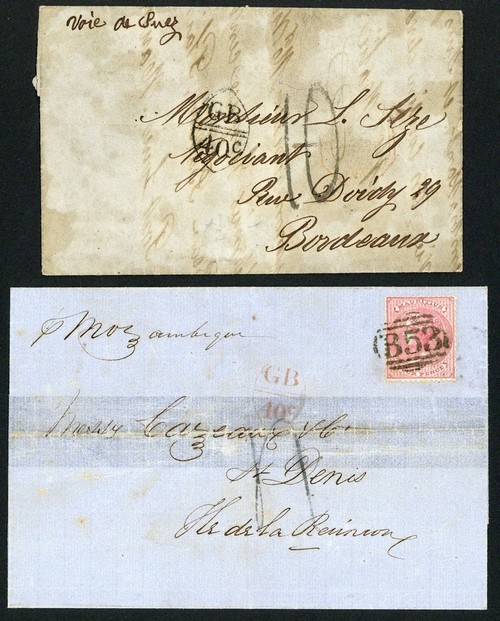 Voie de Suez
GB
40c
Monsieur L. Size
Négociant
Rue Doidy 29
Bordeaux
10
MAURITIUS
B53
p Mozambique
GB
40c
Messrs Cazeaux & Co
St Denis
Ile de la Réunion